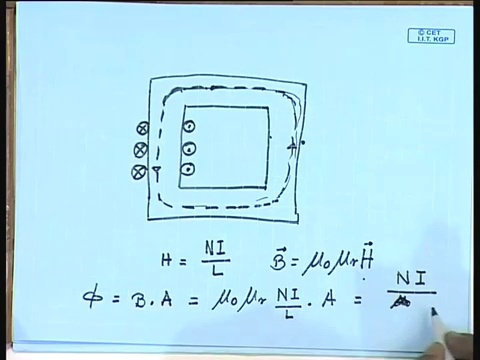 © CET
I.I.T. KGP
A
H = NI/L    B⃗ = μ₀μᵣH⃗
φ = B.A = μ₀μᵣ NI/L . A = NI/